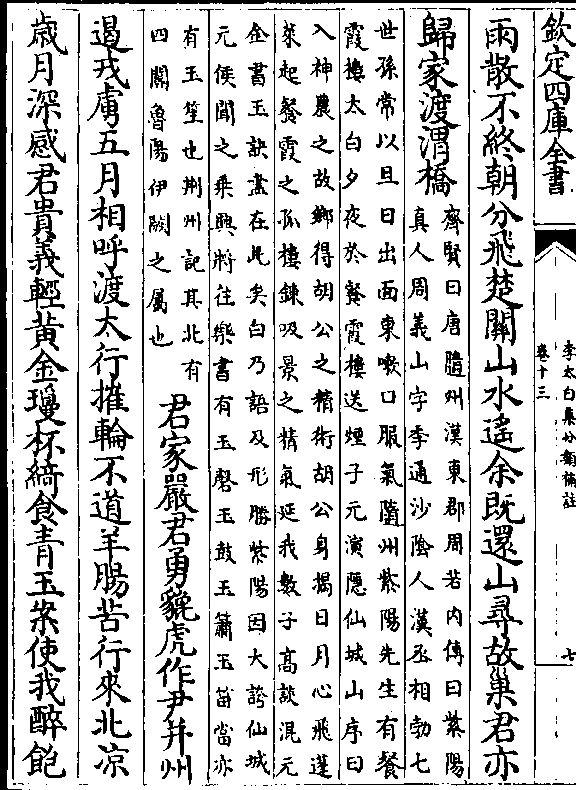 欽定四庫全書
李太白集分類補註
卷十三
七
雨散不終朝分飛楚關山水遙余既還山尋故巢君亦
歸家渡渭橋
齊賢曰唐隨州漢東郡周君内傳曰紫陽
真人周義山字季通沙陰人漢丞相勃七
世孫常以旦日出面東嗽口服氣隨州紫陽先生有餐
霞樓太白夕夜於餐霞樓送煙子元演隱仙城山序曰
入神農之故鄉得胡公之精術胡公身揭日月心飛蓬
萊起餐霞之孤樓鍊吸景之精氣延我數子高談混元
金書玉訣盡在此矣白乃語及形勝紫陽因大誇仙城
元侯聞之乘興將往樂書有玉磬玉鼓玉簫玉笛當亦
有玉笙也荆州記其北有
四闗魯陽伊闕之屬也
君家嚴君勇貔虎作尹并州
遏戎虜五月相呼渡太行摧輪不道羊腸苦行來北凉
歲月深感君貴義輕黄金瓊杯綺食青玉案使我醉飽